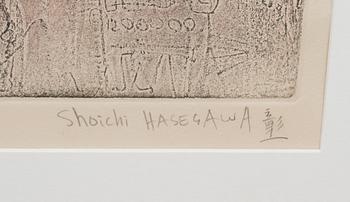 Shoichi HASEGAWA 彰